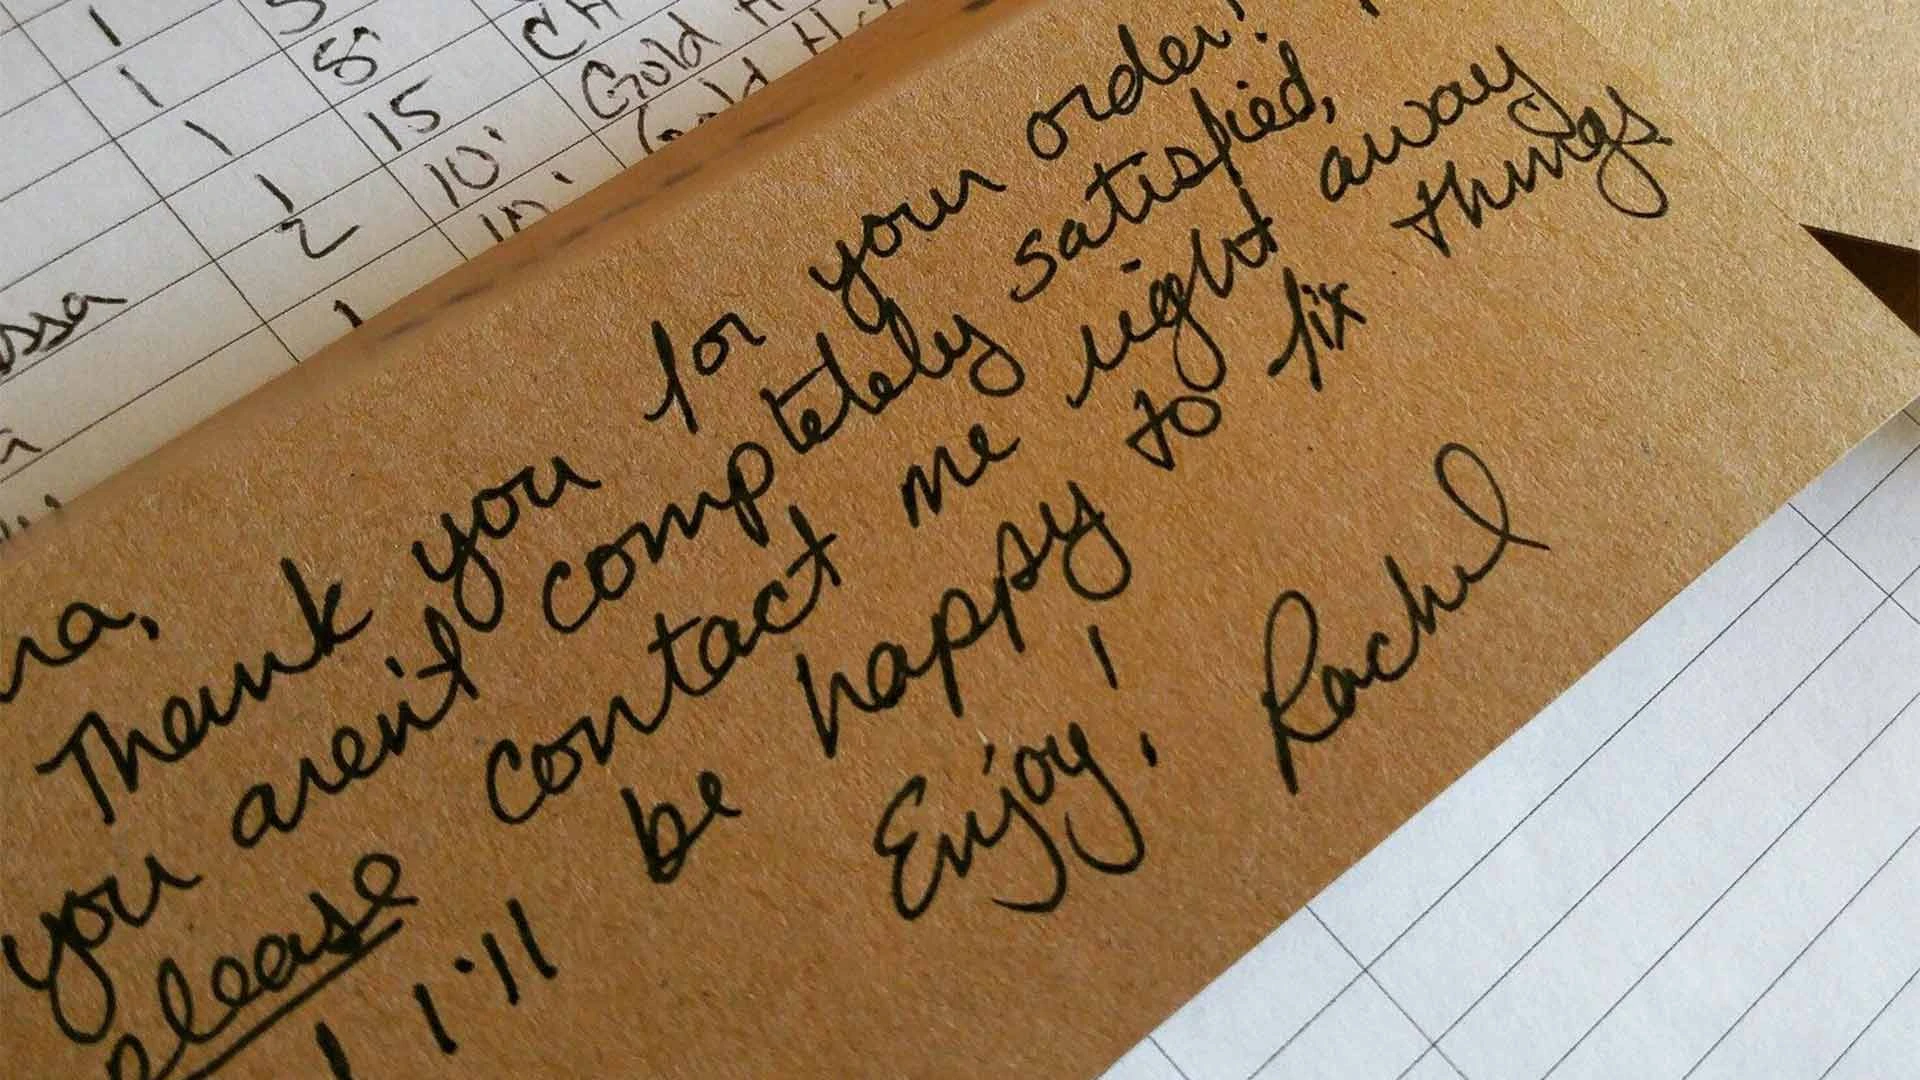 1 5
1 8 CH
1 15 Gold H
1 10' Gold H
2 10'
ssa 1
na,
Thank you for your order!
you aren't completely satisfied,
please contact me right away
I'll be happy to fix things
Enjoy!
Rachel